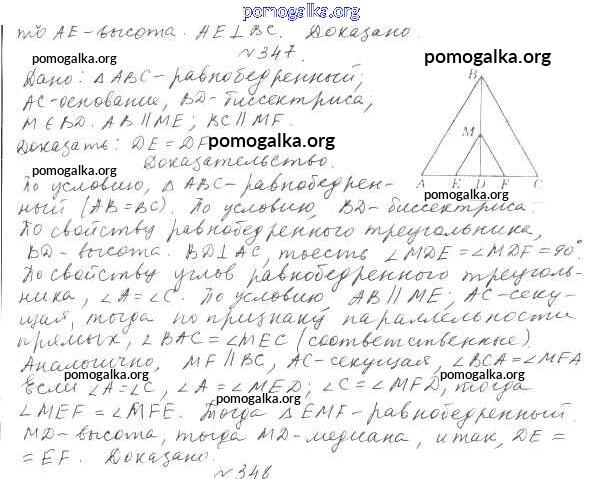 pomogalka.org
то AE-высота. AE⊥BC. Доказано.
№347.
pomogalka.org
pomogalka.org
Дано: △ABC-равнобедренный;
AC-основание, BD-биссектриса;
M∈BD. AB∥ME; BC∥MF.
Доказать: DE=DF
pomogalka.org
Доказательство.
B
M
A E D F C
По условию, △ABC-равнобедрен-
ный (AB=BC). По условию, BD-биссектриса.
По свойству равнобедренного треугольника,
BD-высота. BD⊥AC, тоесть ∠MDE=∠MDF=90°.
По свойству углов равнобедренного треуголь-
ника, ∠A=∠C. По условию, AB∥ME; AC-секу-
щая, тогда по признаку параллельности
прямых, ∠BAC=∠MEC (соответственные).
Аналогично, MF∥BC, AC-секущая, ∠BCA=∠MFA
pomogalka.org
pomogalka.org
Если ∠A=∠C, ∠A=∠MED; ∠C=∠MFD, тогда
pomogalka.org
∠MEF=∠MFE. Тогда △EMF-равнобедренный.
MD-высота, тогда MD-медиана, итак, DE=
=EF. Доказано.
pomogalka.org
№348